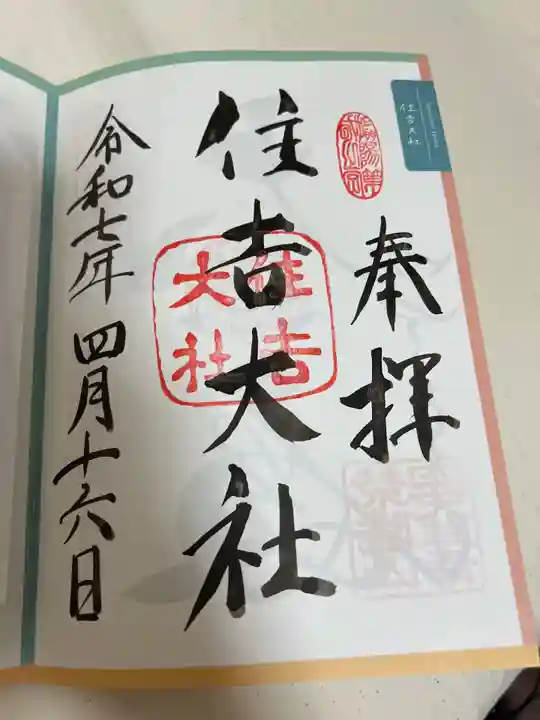 住吉大社
奉拝
住吉大社
住吉大社
令和七年四月十六日